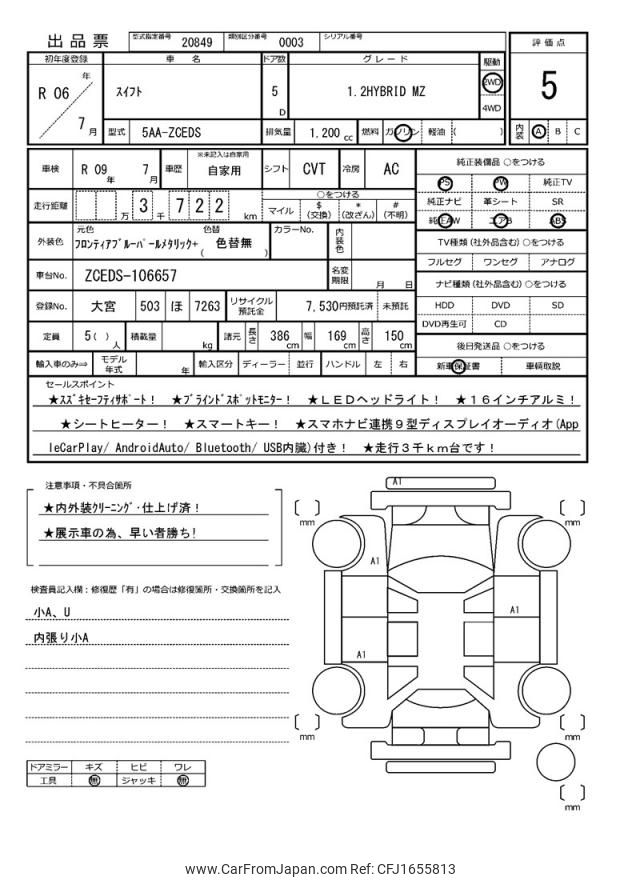 出品票 型式指定番号 20849 類別区分番号 0003 シリアル番号
評価点
5
初年度登録 車名 ドア数 グレード 駆動
R 06 年 7 月
スイフト 5 D 1.2HYBRID MZ 2WD
4WD
型式 5AA-ZCEDS 排気量 1,200 cc 燃料 ガソリン 軽油 ( )
内装 A B C
車検 R 09 年 7 月 車歴 ※未記入は自家用 自家用 シフト CVT 冷房 AC
純正装備品 ○をつける
PS PW 純正TV
純正ナビ 革シート SR
純正AW エアB ABS
走行距離 万 3 千 7 2 2 km
○をつける
マイル $ (交換) * (改ざん) # (不明)
外装色 元色 色替
フロンティアブルーパールメタリック+ ( 色替無 )
カラーNo. 内装色
TV種類 (社外品含む) ○をつける
フルセグ ワンセグ アナログ
車台No. ZCEDS-106657 名変期限 月 日
ナビ種類 (社外品含む) ○をつける
HDD DVD SD
DVD再生可 CD
登録No. 大宮 503 ほ 7263 リサイクル預託金 7,530円預託済 未預託
定員 5 ( ) 人 積載量 kg 諸元 長さ 386 cm 幅 169 cm 高さ 150 cm
後日発送品 ○をつける
新車保証書 車輌取説
輸入車のみ⇨ モデル年式 年 輸入区分 ディーラー 並行 ハンドル 左 右
セールスポイント
★スズキセーフティサポート! ★ブラインドスポットモニター! ★LEDヘッドライト! ★16インチアルミ!
★シートヒーター! ★スマートキー! ★スマホナビ連携9型ディスプレイオーディオ(App
leCarPlay/ AndroidAuto/ Bluetooth/ USB内臓)付き! ★走行3千km台です!
注意事項・不具合箇所
★内外装クリーニング・仕上げ済!
★展示車の為、早い者勝ち!
検査員記入欄:修復歴「有」の場合は修復箇所・交換箇所を記入
小A、U
内張り小A
ドアミラー キズ ヒビ ワレ
工具 無 ジャッキ 無
A1
mm
mm
A1
A1
A1
mm
mm
mm
www.CarFromJapan.com Ref: CFJ1655813